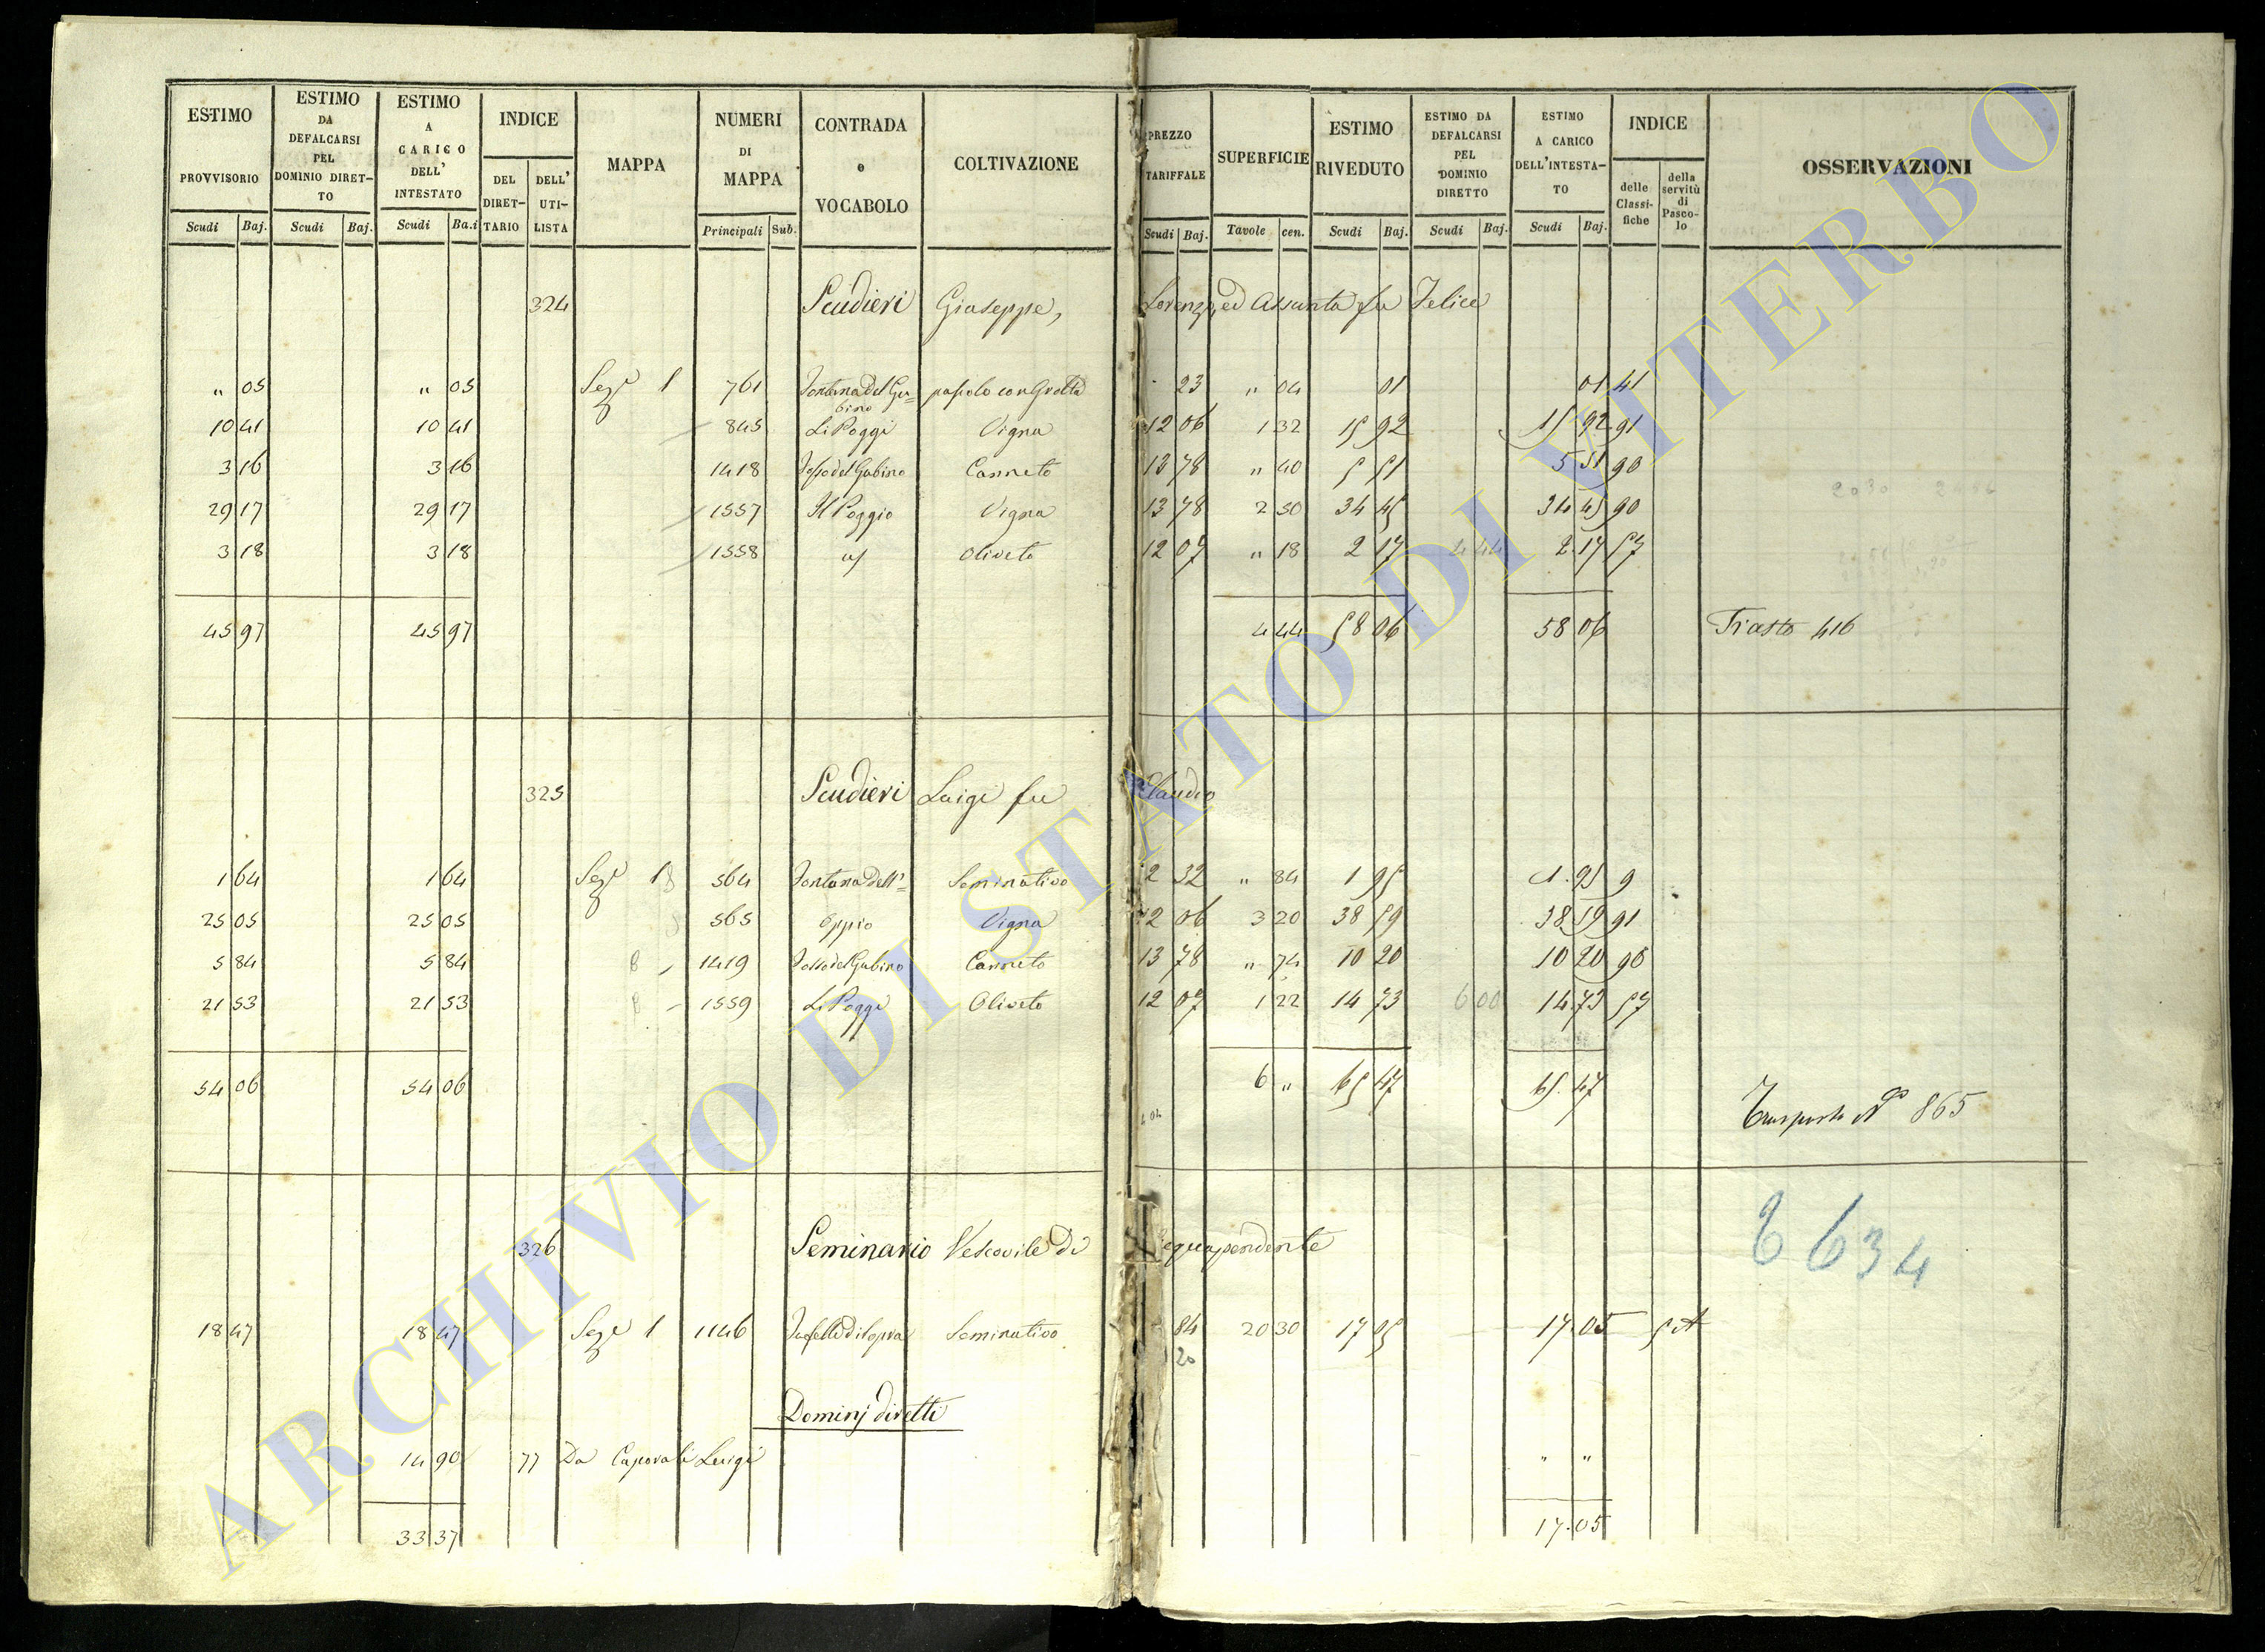 ESTIMO PROVVISORIO | ESTIMO DA DEFALCARSI PEL DOMINIO DIRET-TO | ESTIMO A CARICO DELL' INTESTATO | INDICE | MAPPA | NUMERI DI MAPPA | CONTRADA e VOCABOLO | COLTIVAZIONE | PREZZO TARIFFALE | SUPERFICIE | ESTIMO RIVEDUTO | ESTIMO DA DEFALCARSI PEL DOMINIO DIRETTO | ESTIMO A CARICO DELL'INTESTA-TO | INDICE | OSSERVAZIONI
DEL DIRET-TARIO | DELL' UTI-LISTA | delle Classi-fiche | della servitù di Pasco-lo
Scudi | Baj. | Scudi | Baj. | Scudi | Ba.i | Principali | Sub. | Scudi | Baj. | Tavole | cen. | Scudi | Baj. | Scudi | Baj. | Scudi | Baj.
324 Scudieri Giuseppe, Lorenzo, ed Assunta fu Felice
" 05 | " 05 | Sez.e 1 | 761 | Fontana del Gu=bino | pascolo con Grotta | 23 | " 04 | 01 | 01 | 41
10 41 | 10 41 | 845 | Li Poggi | Vigna | 12 06 | 1 32 | 15 92 | 15 92 | 91
3 16 | 3 16 | 1418 | Fosso del Gubino | Canneto | 13 78 | " 40 | 5 51 | 5 51 | 90
29 17 | 29 17 | 1557 | Il Poggio | Vigna | 13 78 | 2 50 | 34 45 | 34 45 | 90
3 18 | 3 18 | 1558 | Oliveto | 12 07 | " 18 | 2 17 | 4 44 | 2 17 | 57
45 97 | 45 97 | 4 44 | 58 06 | 58 06 | 416
325 Scudieri Luigi fu Claudio
1 64 | 1 64 | Sez.e 1 8 | 564 | Fontana dell'= | Seminativo | 2 32 | " 84 | 1 95 | 1.95 | 9
25 05 | 25 05 | 8 | 565 | Oppio | Vigna | 12 06 | 3 20 | 38 59 | 38 59 | 91
5 84 | 5 84 | 8 | 1419 | Fosso del Gubino | Canneto | 13 78 | " 74 | 10 20 | 10 20 | 90
21 53 | 21 53 | 8 | 1559 | Li Poggi | Oliveto | 12 07 | 1 22 | 14 73 | 6 00 | 14.73 | 57
54 06 | 54 06 | 6 " | 65 47 | 65.47
Trasporto N° 865
326 Seminario Vescovile di Acquapendente
6634
18 47 | 18 47 | Sez.e 1 | 1146 | Seminativo | 84 | 20 30 | 17 05 | 17.05 | 5 A
20
Dominj diretti
14 90 | 77 | Da Caporali Luigi | " "
33 37 | 17.05
ARCHIVIO DI STATO DI VITERBO